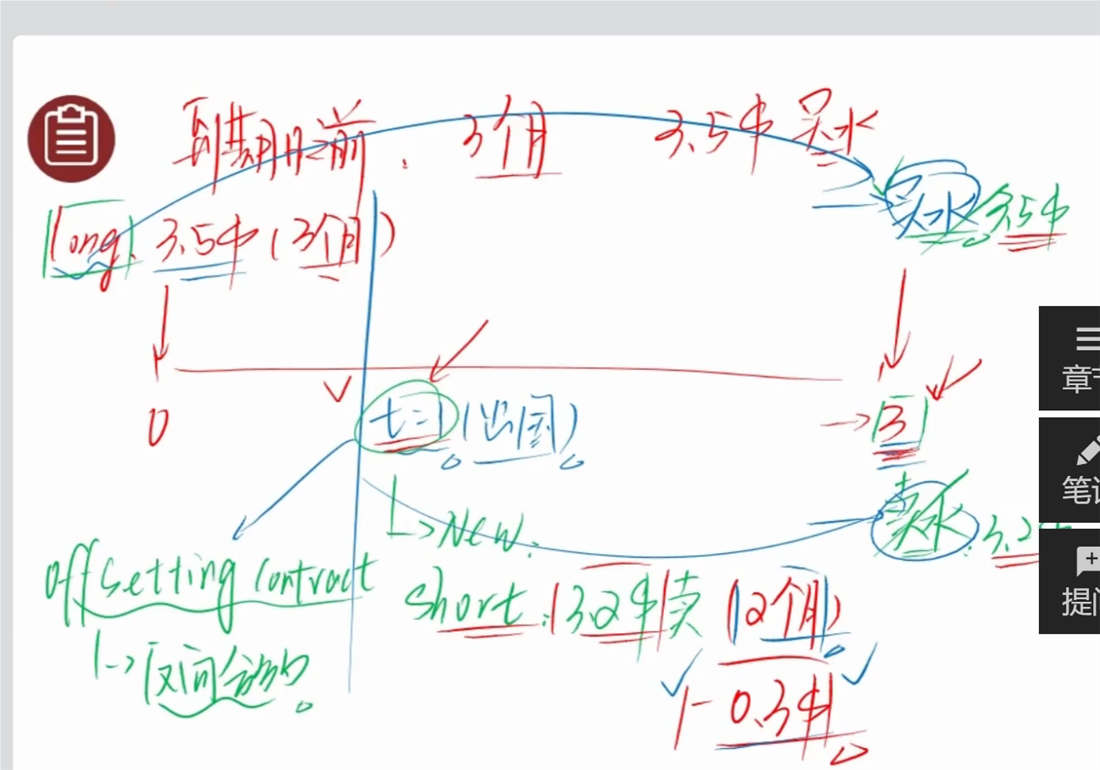 到期日之前. 3个月 3.5中 买水
long. 3.5中 (3个月)
买水 3.5中
0
t=1 (出国)
→ 3
章节
笔记
提问
卖水 3.2
↳ New.
offsetting contract
short. (3.2中 卖 (2个月)
↳ 反向合约
|-0.3中|